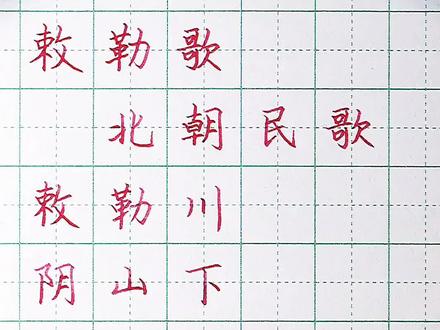 敕勒歌
北朝民歌
敕勒川
阴山下